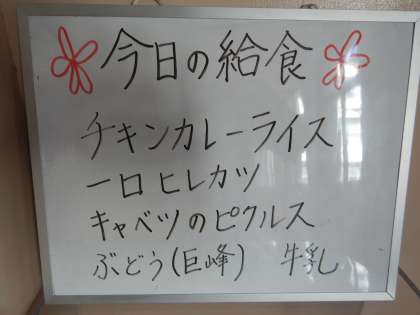 今日の給食
チキンカレーライス
一口ヒレカツ
キャベツのピクルス
ぶどう(巨峰) 牛乳